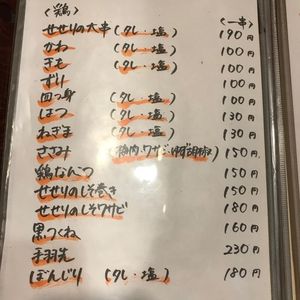 〈鶏〉 (一串)
せせりの大串 (タレ・塩) 190円
かわ (タレ・塩) 100円
きも (タレ・塩) 100円
ずり 100円
四つ身 (タレ・塩) 100円
はつ (タレ・塩) 130円
ねぎま (タレ・塩) 130円
ささみ (梅肉・ワサビ・ゆず胡椒) 150円
鶏なんこつ 150円
せせりのしそ巻き 150円
せせりのしそワサビ 180円
黒つくね 160円
手羽先 230円
ぼんじり (タレ・塩) 180円